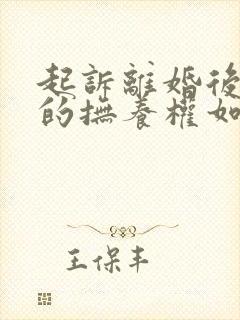 起訴離婚後
的撫養權如
王保丰